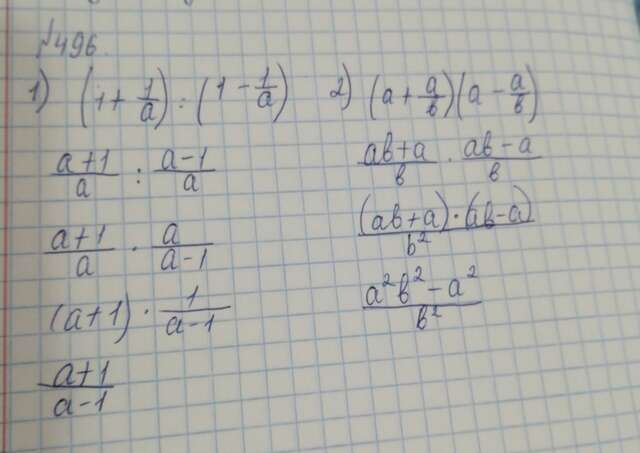 №496.
1) (1 + 1/a) : (1 - 1/a)
(a+1)/a : (a-1)/a
(a+1)/a · a/(a-1)
(a+1) · 1/(a-1)
(a+1)/(a-1)
2) (a + a/в)(a - a/в)
(aв+a)/в · (aв-a)/в
((aв+a)·(aв-a))/в²
(a²в² - a²)/в²